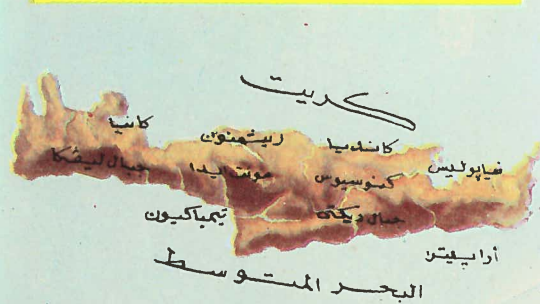 كريت
كانيا
ريثمنون
كانديا
نيابوليس
جبال ليفكا
مونت ايدا
كنوسيوس
جبال ديكتي
تيمباكيون
أرابيترا
البحر المتوسط